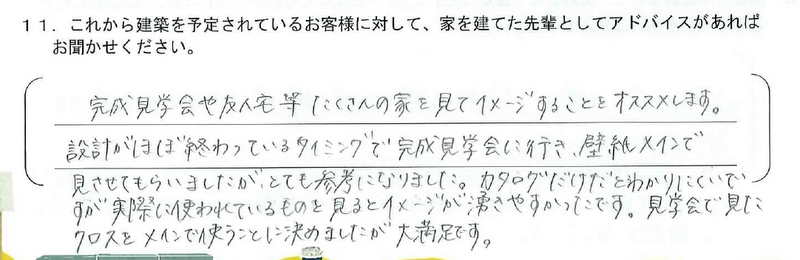 11. これから建築を予定されているお客様に対して、家を建てた先輩としてアドバイスがあれば
お聞かせください。
完成見学会や友人宅等たくさんの家を見てイメージすることをオススメします。
設計がほぼ終わっているタイミングで完成見学会に行き、壁紙メインで
見させてもらいましたが、とても参考になりました。カタログだけだとわかりにくいで
すが実際に使われているものを見るとイメージが湧きやすかったです。見学会で見た
クロスをメインで使うことに決めましたが大満足です。